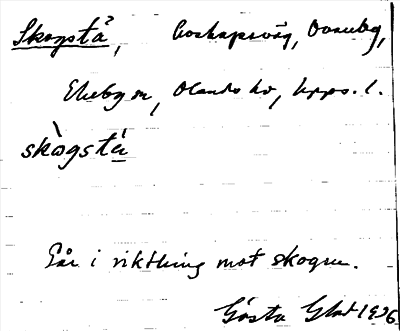 Skogstå, boskapsväg, Ovanby,
Ekeby sn, Olands hd, Upps. l.
skògstá
Går i riktning mot skogen.
Gösta Glad 1936